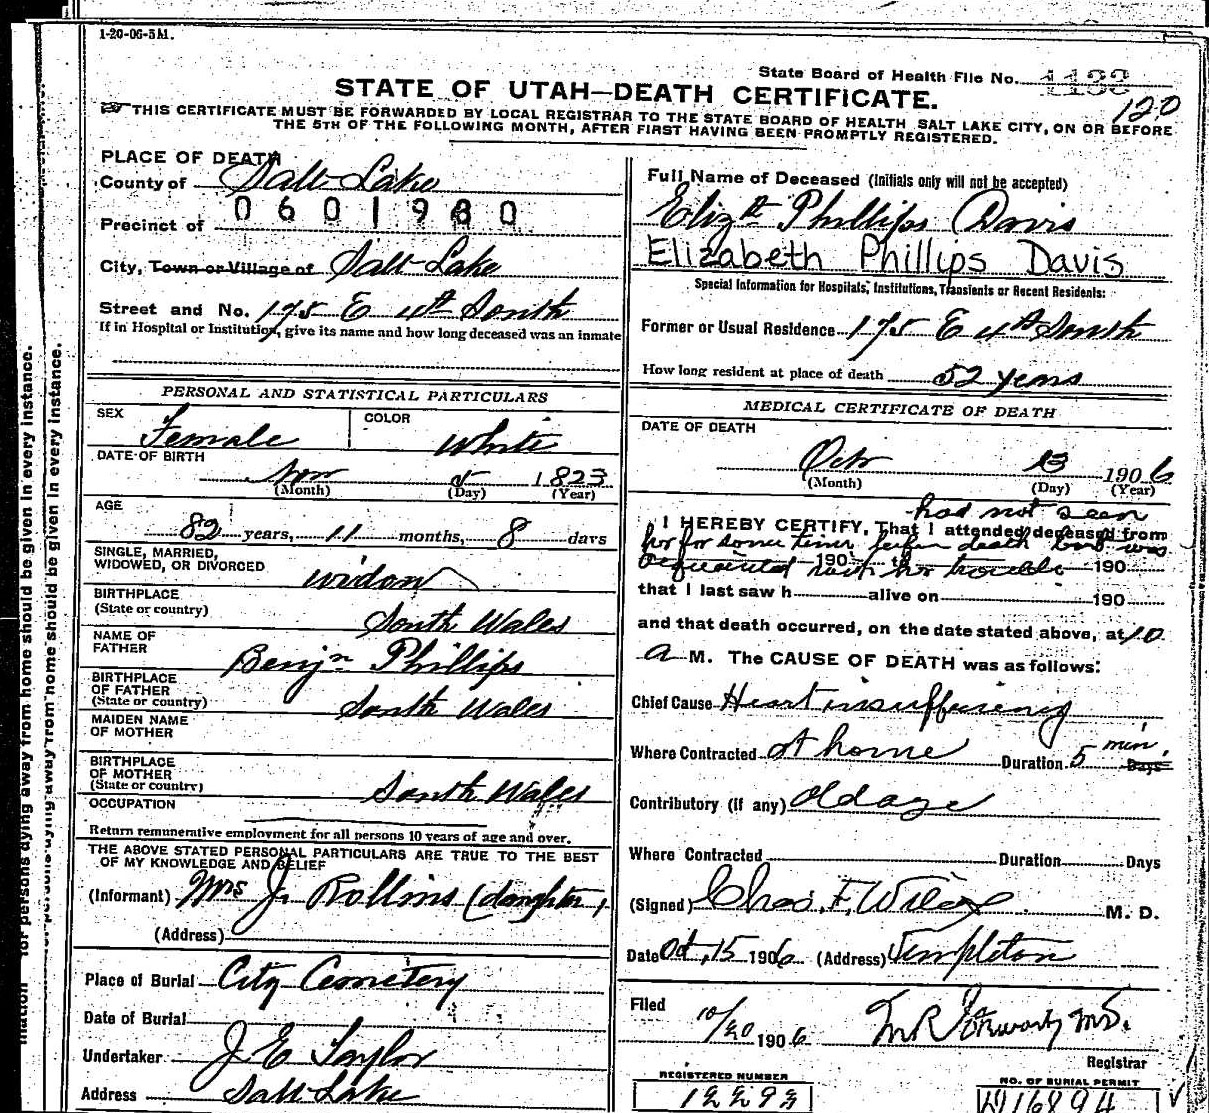 1-20-06-5M.
State Board of Health File No. 1133
STATE OF UTAH—DEATH CERTIFICATE.
120
THIS CERTIFICATE MUST BE FORWARDED BY LOCAL REGISTRAR TO THE STATE BOARD OF HEALTH SALT LAKE CITY, ON OR BEFORE
THE 5TH OF THE FOLLOWING MONTH, AFTER FIRST HAVING BEEN PROMPTLY REGISTERED.
PLACE OF DEATH
County of Salt Lake
0601980
Precinct of
City, Town or Village of Salt Lake
Street and No. 175 E 4th South
If in Hospital or Institution, give its name and how long deceased was an inmate
PERSONAL AND STATISTICAL PARTICULARS
SEX Female COLOR White
DATE OF BIRTH Nov 5 1823
(Month) (Day) (Year)
AGE
82 years, 11 months, 8 days
SINGLE, MARRIED,
WIDOWED, OR DIVORCED widow
BIRTHPLACE
(State or country) South Wales
NAME OF
FATHER Benjn Phillips
BIRTHPLACE
OF FATHER
(State or country) South Wales
MAIDEN NAME
OF MOTHER
BIRTHPLACE
OF MOTHER
(State or country) South Wales
OCCUPATION
Return remunerative employment for all persons 10 years of age and over.
THE ABOVE STATED PERSONAL PARTICULARS ARE TRUE TO THE BEST
OF MY KNOWLEDGE AND BELIEF
(Informant) Mrs J. Rollins (daughter)
(Address)
Place of Burial City Cemetery
Date of Burial
Undertaker J E Taylor
Address Salt Lake
Full Name of Deceased (Initials only will not be accepted)
Elizth Phillips Davis
Elizabeth Phillips Davis
Special Information for Hospitals, Institutions, Transients or Recent Residents:
Former or Usual Residence 175 E 4th South
How long resident at place of death 52 years
MEDICAL CERTIFICATE OF DEATH
DATE OF DEATH
Oct 13 1906
(Month) (Day) (Year)
had not seen
I HEREBY CERTIFY, That I attended deceased from
her for some time before death but was
190 to 190
acquainted with her trouble
that I last saw h alive on 190
and that death occurred, on the date stated above, at 10
a M. The CAUSE OF DEATH was as follows:
Chief Cause Heart insufficiency
Where Contracted At home Duration 5 min. Days
Contributory (if any) Old age
Where Contracted Duration Days
(Signed) Chas. F. Wilcox M. D.
Date Oct, 15 1906 (Address) Templeton
Filed
10/20 1906 M.D.
Registrar
REGISTERED NUMBER
NO. OF BURIAL PERMIT
D16894
for persons dying away from home should be given in every instance.